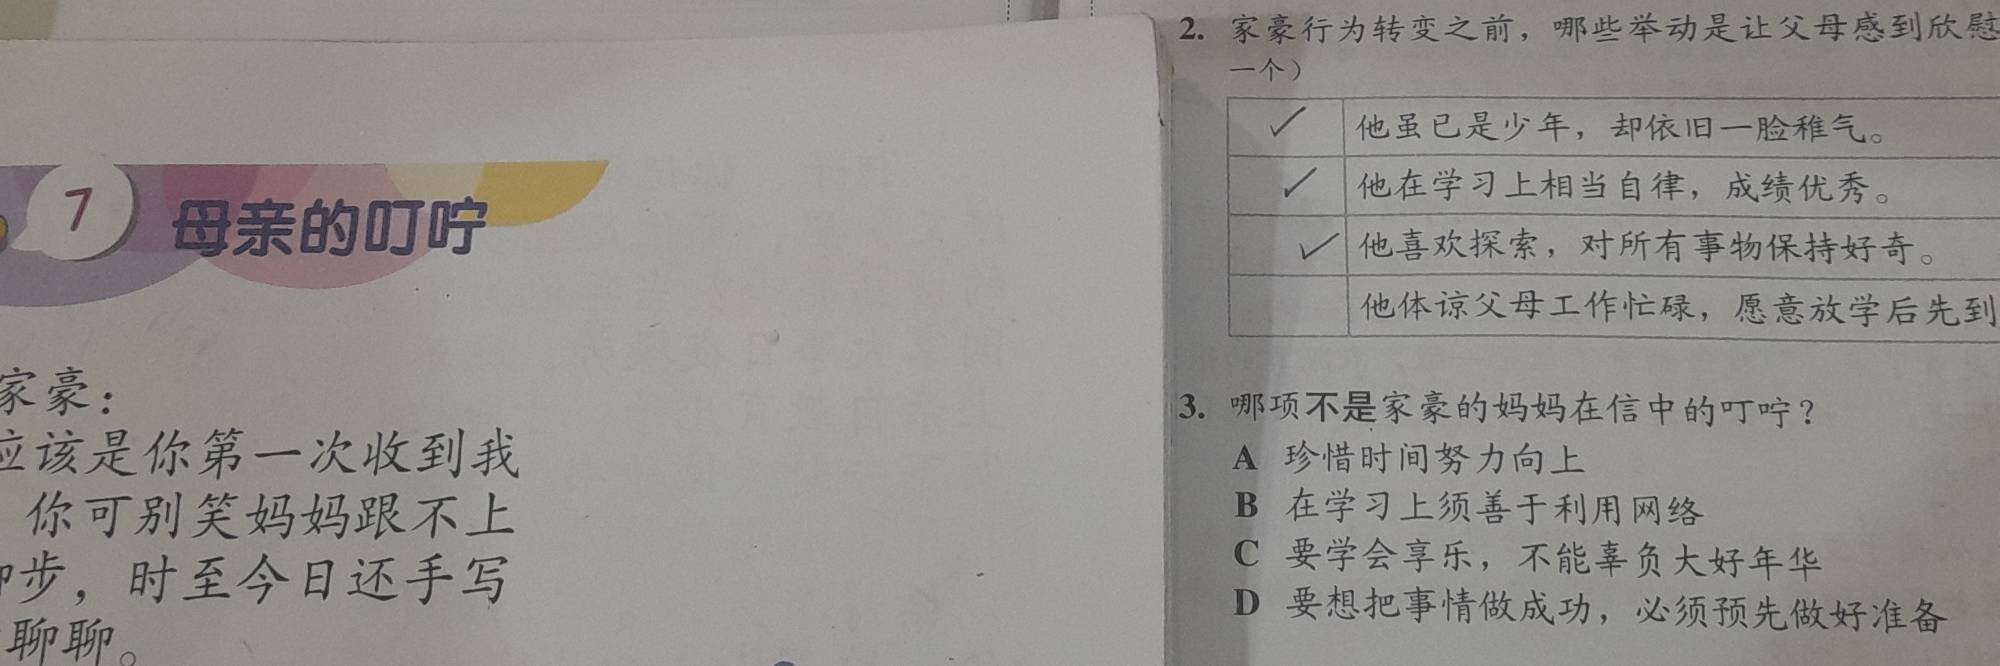 7 母亲的叮咛
家豪：
应该是你第一次收到我
你可别笑妈妈跟不上
步，时至今日还手写
聊聊。
2. 家豪行为转变之前，哪些举动是让父母感到欣慰
一个）
✓ 他虽已是少年，却依旧一脸稚气。
✓ 他在学习上相当自律，成绩优秀。
✓ 他喜欢探索，对所有事物保持好奇。
他体谅父母工作忙碌，愿意放学后先到
3. 哪项不是家豪的妈妈在信中的叮咛？
A 珍惜时间努力向上
B 在学习上须善于利用网络
C 要学会享乐，不能辜负大好年华
D 要想把事情做成功，必须预先做好准备